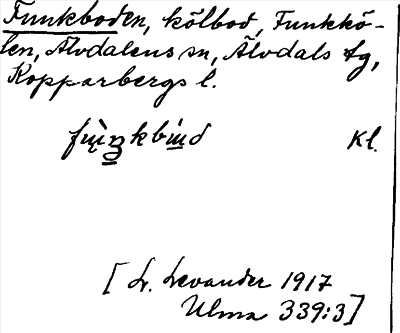 Funkboden, kölbod, Funkkö-
len, Älvdalens sn, Älvdals tg,
Kopparbergs l.
Kl.
[ L. Levander 1917
Ulma 339:3]